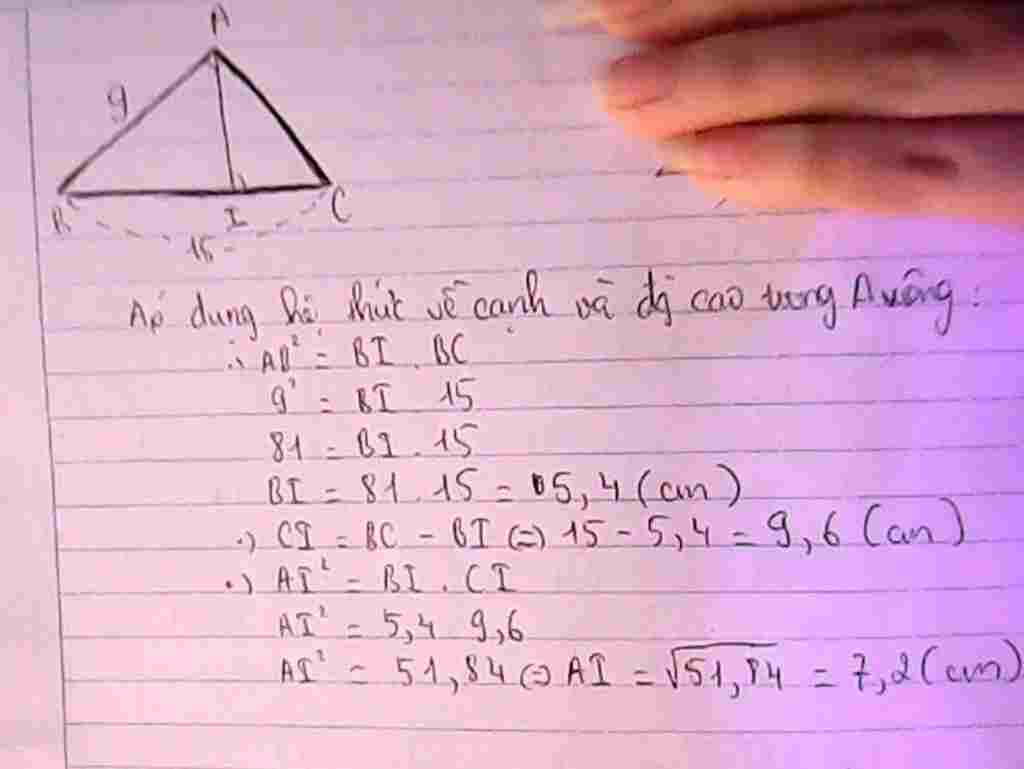 A
9
B I C
15
Áp dụng hệ thức về cạnh và độ cao trong Δ vuông :
∴ AB² = BI . BC
9² = BI 15
81 = BI . 15
BI = 81 . 15 = 5,4 (cm)
·) CI = BC - BI (=) 15 - 5,4 = 9,6 (cm)
·) AI² = BI . CI
AI² = 5,4 9,6
AI² = 51,84 (=) AI = √51,84 = 7,2 (cm)